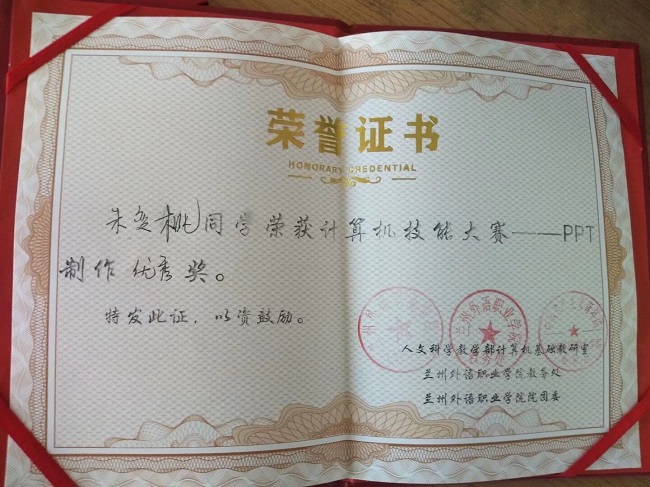 荣誉证书
HONORARY CREDENTIAL
桃同学荣获计算机技能大赛——PPT
制作优秀奖。
特发此证，以资鼓励。
兰州外语职业学院
人文科学教学部计算机基础教研室
兰州外语职业学院教务处
兰州外语职业学院院团委